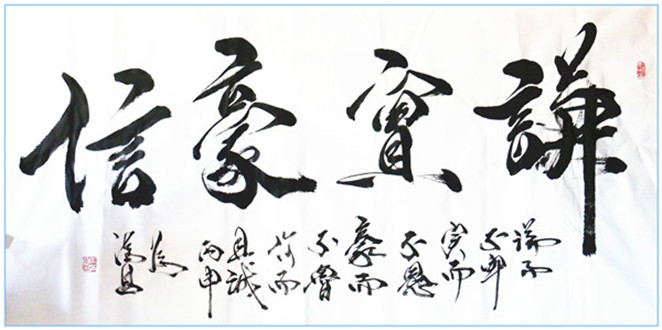 謙實豪信
謙而
不卑
實而
不愚
豪而
不
信而
具誠
丙申